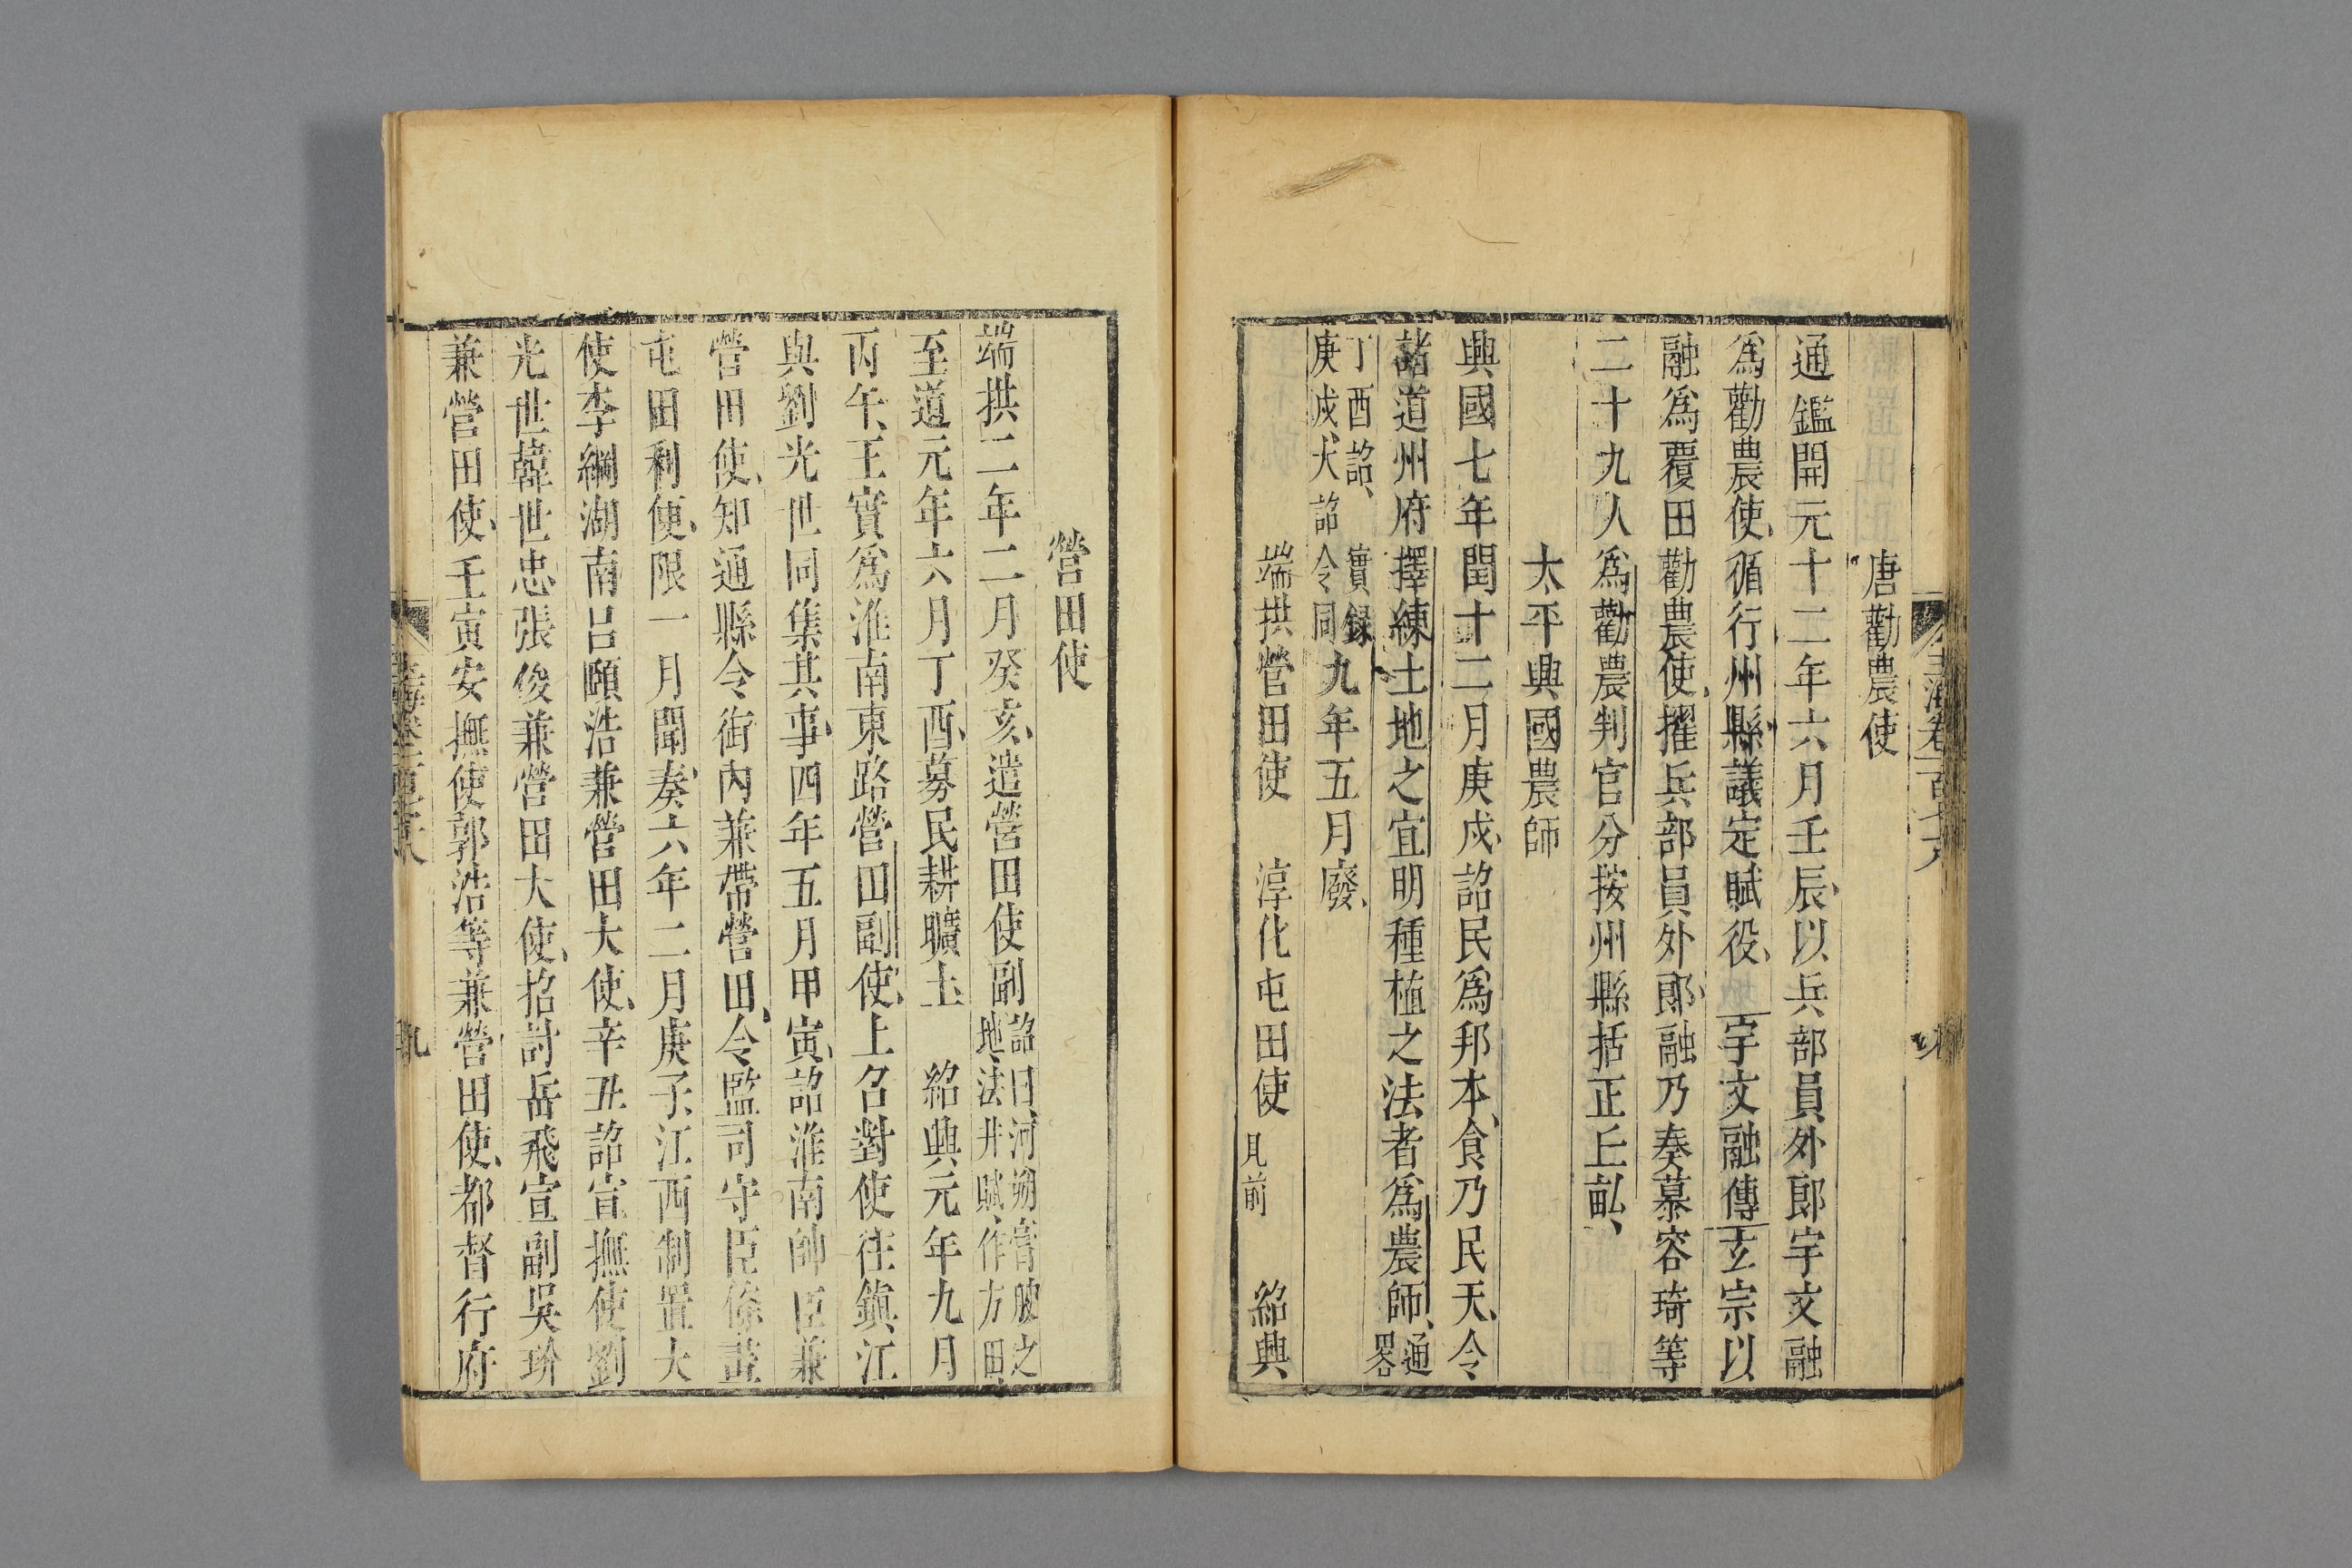 唐勸農使
通鑑開元十二年六月壬辰、以兵部員外郎宇文融
爲勸農使、循行州縣、議定賦役、宇文融傳玄宗以
融爲覆田勸農使、擢兵部員外郎、融乃奏慕容琦等
二十九人爲勸農判官分按州縣括正丘畝、
太平興國農師
興國七年閏十二月庚戌、詔民爲邦本、食乃民天、令
諸道州府擇練土地之宜明種植之法者爲農師、通畧
丁酉詔、實録
庚戌、大詔令同九年五月廢、
端拱營田使 淳化屯田使 見前 紹興
營田使
端拱二年二月癸亥、遣營田使副詔曰、河朔膏腴之
地、法井賦、作方田、
至道元年六月丁酉、募民耕曠土 紹興元年九月
丙午、王實爲淮南東路營田副使、上召對使往鎮江
與劉光世同集其事、四年五月甲寅、詔淮南帥臣兼
營田使、知通縣令街内兼帶營田、令監司守臣條畫
屯田利便、限一月聞奏、六年二月庚子、江西制置大
使李綱湖南呂頤浩兼營田大使、辛丑詔宣撫使劉
光世韓世忠張俊兼營田大使、招討岳飛宣副吳玠
兼營田使、壬寅安撫使郭浩等兼營田使、都督行府